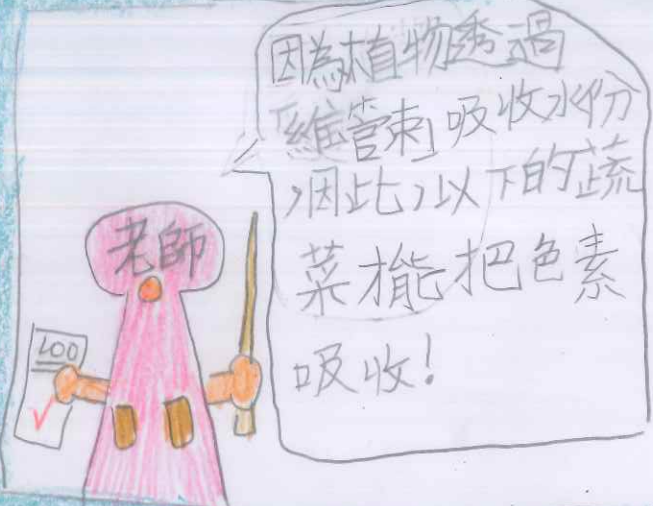 因為植物透過
「維管束」吸收水份
,因此,以下的蔬
菜才能把色素
吸收!
老師
100